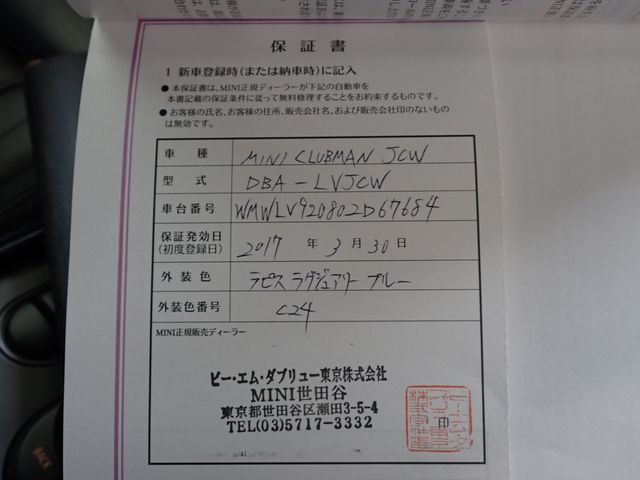 保証書
1 新車登録時(または納車時)に記入
●本保証書は、MINI正規ディーラーが下記の自動車を
本書記載の保証条件に従って無料修理することをお約束するものです。
●お客様の氏名、お客様の住所、販売会社名、および販売会社印のないもの
は無効です。
車種 MINI CLUBMAN JCW
型式 DBA-LVJCW
車台番号 WMWLV920802D67684
保証発効日
(初度登録日) 2017 年 3 月 30 日
外装色 ラピスラグジュアリー ブルー
外装色番号 C24
MINI正規販売ディーラー
ビー・エム・ダブリュー東京株式会社
MINI世田谷
東京都世田谷区瀬田3-5-4
TEL(03)5717-3332
印
BACK